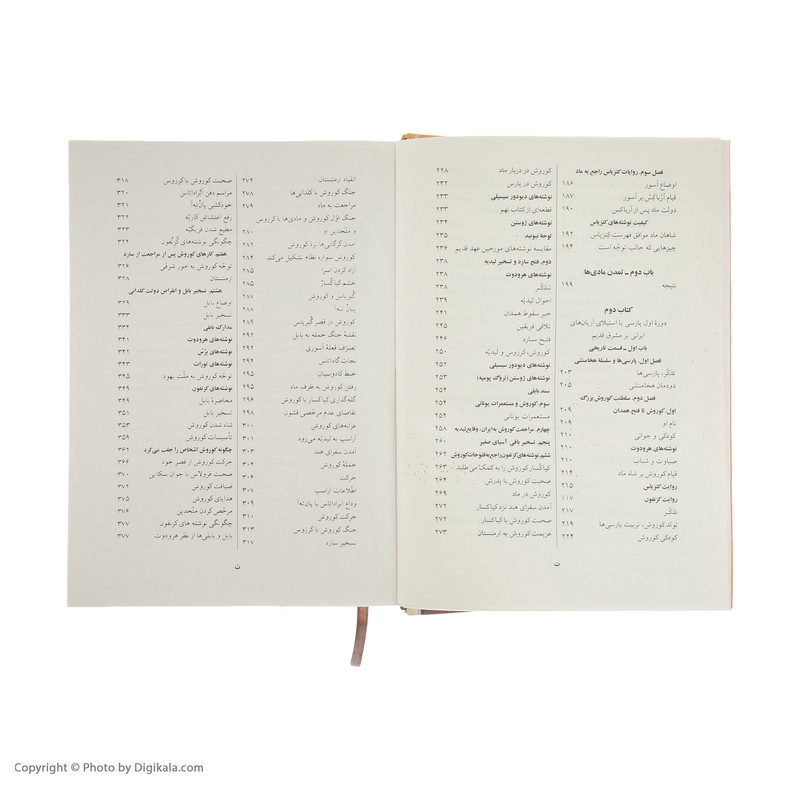 فصل سوم. روایات کتزیاس راجع به ماد
اوضاع آسور ۱۸۶
قیام آرباکِس بر آسور ۱۸۷
دولت ماد پس از آرباکس ۱۹۰
کیفیت نوشته‌های کتزیاس
شاهان ماد موافق فهرست کتزیاس ۱۹۲
چیزهایی که جالب توجّه است ۱۹۴
باب دوم ـ تمدن مادی‌ها
نتیجه ۱۹۹
کتاب دوم
دورهٔ اول پارسی یا استیلای آریان‌های
ایرانی بر مشرق قدیم
باب اول ـ قسمت تاریخی
فصل اول. پارسی‌ها و سلسلهٔ هخامنشی
تذکّر، پارسی‌ها ۲۰۳
دودمان هخامنشی ۲۰۵
فصل دوم. سلطنت کوروش بزرگ
اول. کوروش تا فتح همدان ۲۰۹
نام او ۲۰۹
کودکی و جوانی ۲۱۰
نوشته‌های هرودوت ۲۱۰
صباوت و شباب ۲۱۰
قیام کوروش بر شاه ماد ۲۱۴
روایت کتزیاس ۲۱۵
روایت کزنفون ۲۱۷
تذکّر ۲۱۷
تولد کوروش، تربیت پارسی‌ها ۲۱۹
کودکی کوروش ۲۲۴
کوروش در دربار ماد ۲۲۸
کوروش در پارس ۲۳۲
نوشته‌های دیودور سیسیلی ۲۳۳
قطعه‌ای از کتاب نهم ۲۳۳
نوشته‌های ژوستن ۲۳۴
لوحهٔ نبونید ۲۳۵
مقایسه نوشته‌های مورخین عهد قدیم ۲۳۶
دوم. فتح سارد و تسخیر لیدیه ۲۳۸
نوشته‌های هرودوت ۲۳۸
تذکّر ۲۳۸
احوال لیدیه ۲۳۹
خبر سقوط همدان ۲۴۱
تلاقی فریقین ۲۴۵
فتح سارد ۲۴۶
کوروش، کرزوس و لیدیّه ۲۵۰
نوشته‌های دیودور سیسیلی ۲۵۲
نوشته‌های ژوستن (تروگ پومپه) ۲۵۳
سند بابلی ۲۵۴
سوم. کوروش و مستعمرات یونانی ۲۵۴
مستعمرات یونانی ۲۵۴
چهارم. مراجعت کوروش به ایران، وقایع لیدیه ۲۵۸
پنجم. تسخیر باقی آسیای صغیر ۲۶۰
ششم. نوشته‌های کزنفون راجع به فتوحات کوروش ۲۶۲
کیاکسار کوروش را به کمک می‌طلبد ۲۶۳
صحبت کوروش با پدرش ۲۶۴
کوروش در ماد ۲۶۹
آمدن سفرای هند نزد کیاکسار ۲۷۲
صحبت کوروش با کیاکسار ۲۷۲
عزیمت کوروش به ارمنستان ۲۷۳
ت
انقیاد ارمنستان ۲۷۴
جنگ کوروش با کلدانی‌ها ۲۷۸
مراجعت به ماد ۲۷۹
جنگ اوّل کوروش و مادی‌ها با کرزوس
و متحدین او ۲۸۰
آمدن گرگانی‌ها نزد کوروش ۲۸۲
کوروش سواره نظام تشکیل می‌کند ۲۸۴
آزاد کردن اسرا ۲۸۵
خشم کیاکسار ۲۸۵
گبریاس و کوروش ۲۸۷
پان ته‌آ ۲۸۸
کوروش در قصر گبریاس ۲۸۹
نقشهٔ جنگ حمله به بابل ۲۹۲
تصرّف قلعهٔ آسوری ۲۹۲
نجات گاداتاس ۲۹۴
خبط کادوسیان ۲۹۵
رفتن کوروش به طرف ماد ۲۹۵
گله‌گذاری کیاکسار با کوروش ۲۹۶
تقاضای عدم مرخّصی قشون ۲۹۸
عرابه‌های کوروش ۳۰۰
آراسپ به لیدیّه می‌رود ۳۰۱
آمدن سفرای هند ۳۰۳
حملهٔ کوروش ۳۰۴
حرکت ۳۰۶
اطلاعات آراسپ ۳۰۷
وداع آبراداتاس با پان‌ته‌آ ۳۰۹
حرکت کوروش ۳۱۰
جنگ کوروش با کرزوس ۳۱۳
تسخیر سارد ۳۱۷
صحبت کوروش با کرزوس ۳۱۸
مراسم دفن آبراداتاس ۳۲۰
خودکشی پان‌ته‌آ ۳۲۱
رفع اغتشاش کاریّه ۳۲۲
مطیع شدن فریگیّه ۳۲۳
چگونگی نوشته‌های کزنفون ۳۲۴
هفتم. کارهای کوروش پس از مراجعت از سارد
توجّه کوروش به امور شرقی ۳۲۶
ارمنستان ۳۲۸
هشتم. تسخیر بابل و انقراض دولت کلدانی
اوضاع بابل ۳۲۹
تسخیر بابل ۳۳۳
مدارک بابلی ۳۳۴
نوشته‌های هرودوت ۳۴۱
نوشته‌های برُس ۳۴۲
نوشته‌های تورات ۳۴۳
توجّه کوروش به ملّت یهود ۳۴۵
نوشته‌های کزنفون ۳۴۹
محاصرهٔ بابل ۳۴۹
تسخیر بابل ۳۵۱
شاه شدن کوروش ۳۵۳
تأسیسات کوروش ۳۵۹
چگونه کوروش اشخاص را جلب می‌کرد ۳۶۲
حرکت کوروش از قصر خود ۳۶۶
صحبت فرولاس با جوان سکایی ۳۷۰
ضیافت کوروش ۳۷۲
هدایای کوروش ۳۷۵
مرخّص کردن متّحدین ۳۷۶
چگونگی نوشته های کزنفون ۳۷۷
بابل و بابلی‌ها از نظر هرودوت ۳۷۷
ث
Copyright © Photo by Digikala.com